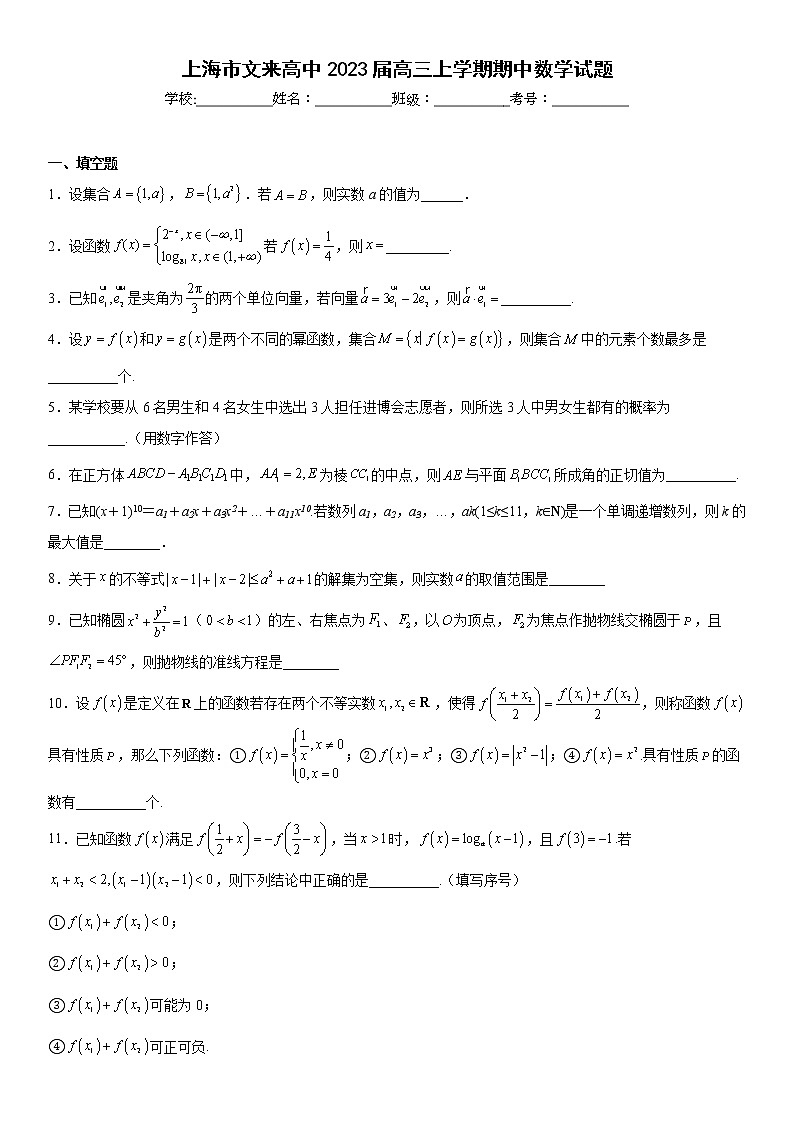 上海市文来高中2023届高三上学期期中数学试题
学校:___________姓名：___________班级：___________考号：___________
一、填空题
1．设集合 A={1,a}，B={1,a²}．若 A=B，则实数 a 的值为______．
2．设函数 f(x)={2^{-x},x∈(-∞,1] ; log₈₁ x,x∈(1,+∞) 若 f(x)=1/4，则 x=_________.
3．已知 e₁,e₂ 是夹角为 2π/3 的两个单位向量，若向量 a=3e₁-2e₂，则 a·e₁=__________.
4．设 y=f(x) 和 y=g(x) 是两个不同的幂函数，集合 M={x|f(x)=g(x)}，则集合 M 中的元素个数最多是
__________个.
5．某学校要从6名男生和4名女生中选出3人担任进博会志愿者，则所选3人中男女生都有的概率为
___________.（用数字作答）
6．在正方体 ABCD-A₁B₁C₁D₁ 中，AA₁=2,E 为棱 CC₁ 的中点，则 AE 与平面 B₁BCC₁ 所成角的正切值为__________.
7．已知(x＋1)10＝a1＋a2x＋a3x2＋…＋a11x10.若数列a1，a2，a3，…，ak(1≤k≤11，k∈N)是一个单调递增数列，则 k 的
最大值是________．
8．关于 x 的不等式 |x-1|+|x-2|≤a²+a+1 的解集为空集，则实数 a 的取值范围是________
9．已知椭圆 x²+y²/b²=1（0<b<1）的左、右焦点为 F₁、F₂，以 O 为顶点，F₂ 为焦点作抛物线交椭圆于 P，且
∠PF₁F₂=45°，则抛物线的准线方程是________
10．设 f(x) 是定义在 R 上的函数若存在两个不等实数 x₁,x₂∈R，使得 f((x₁+x₂)/2)=(f(x₁)+f(x₂))/2，则称函数 f(x)
具有性质 P，那么下列函数：①f(x)={1/x,x≠0 ; 0,x=0；②f(x)=x³；③f(x)=|x²-1|；④f(x)=x².具有性质 P 的函
数有__________个.
11．已知函数 f(x) 满足 f(1/2+x)=-f(3/2-x)，当 x>1 时，f(x)=logₐ(x-1)，且 f(3)=-1.若
x₁+x₂<2,(x₁-1)(x₂-1)<0，则下列结论中正确的是__________.（填写序号）
①f(x₁)+f(x₂)<0；
②f(x₁)+f(x₂)>0；
③f(x₁)+f(x₂)可能为0；
④f(x₁)+f(x₂)可正可负.